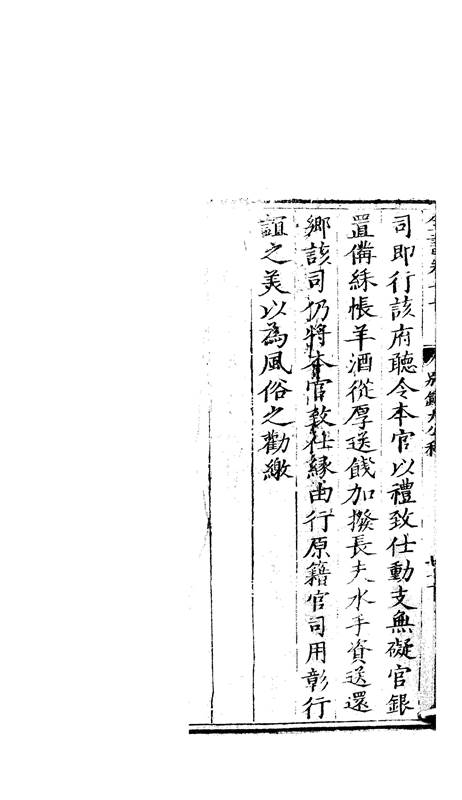 司即行該府聽令本官以禮致仕動支無礙官銀
置備綵帳羊酒從厚送餞加撥長夫水手資送還
鄉該司仍將本官致仕緣由行原籍官司用彰行
誼之美以為風俗之勸繳